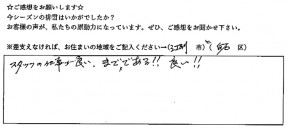 ☆ご感想をお願いします☆
今シーズンの排雪はいかがでしたか?
お客様の声が、私たちの原動力になっています。ぜひ、ご感想をお聞かせ下さい。
※差支えなければ、お住まいの地域をご記入ください→(江別 市)( 区)
スタッフの仕事が良い、まで、である!! 良い!!